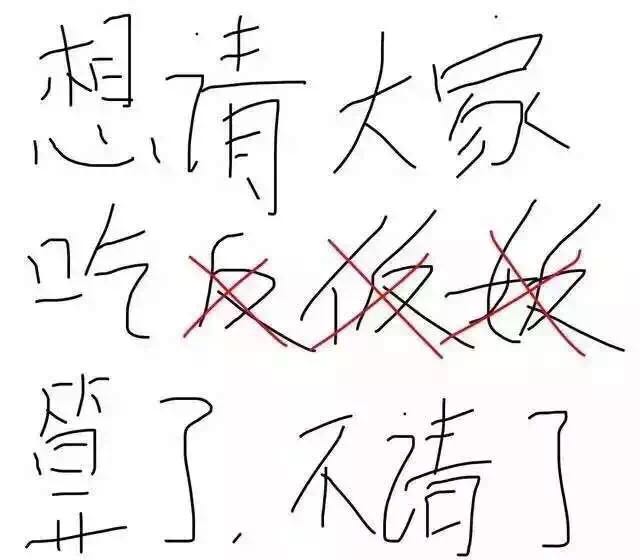 想请大家
吃反仮
算了,不请了